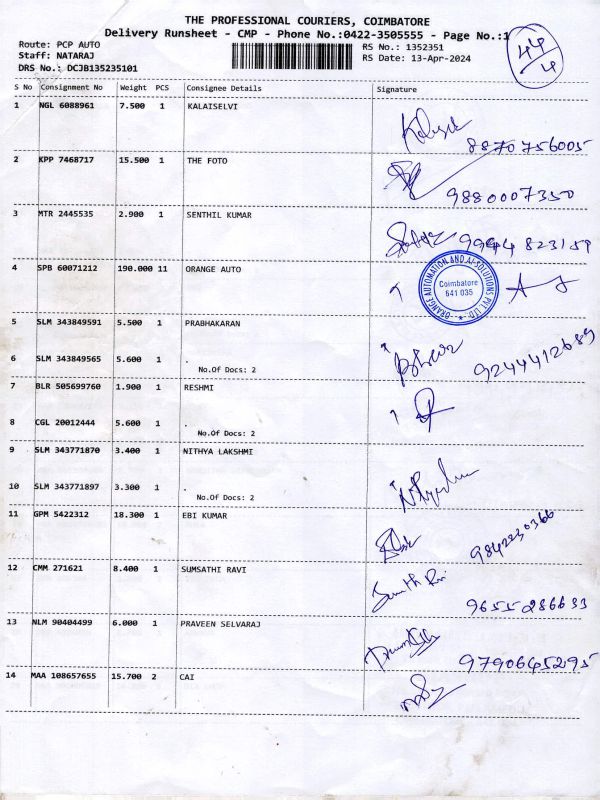 THE PROFESSIONAL COURIERS, COIMBATORE
Delivery Runsheet - CMP - Phone No.:0422-3505555 - Page No.:1
Route: PCP AUTO
Staff: NATARAJ
DRS No.: DCJB135235101
RS No.: 1352351
RS Date: 13-Apr-2024
44/4
S No Consignment No Weight PCS Consignee Details Signature
1 NGL 6088961 7.500 1 KALAISELVI
8870756005
2 KPP 7468717 15.500 1 THE FOTO
9880007350
3 MTR 2445535 2.900 1 SENTHIL KUMAR
9944 823159
4 SPB 60071212 190.000 11 ORANGE AUTO
ORANGE AUTOMATION AND AI-SOLUTIONS PVT. LTD.
Coimbatore
641 035
5 SLM 343849591 5.500 1 PRABHAKARAN
6 SLM 343849565 5.600 1 .
No.Of Docs: 2
9244412689
7 BLR 505699760 1.900 1 RESHMI
8 CGL 20012444 5.600 1 .
No.Of Docs: 2
9 SLM 343771870 3.400 1 NITHYA LAKSHMI
10 SLM 343771897 3.300 1 .
No.Of Docs: 2
11 GPM 5422312 18.300 1 EBI KUMAR
9842230366
12 CMM 271621 8.400 1 SUMSATHI RAVI
9655286633
13 NLM 90404499 6.000 1 PRAVEEN SELVARAJ
9790645295
14 MAA 108657655 15.700 2 CAI